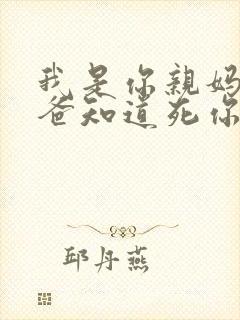 我是你親媽
爸知道死你
邱丹燕